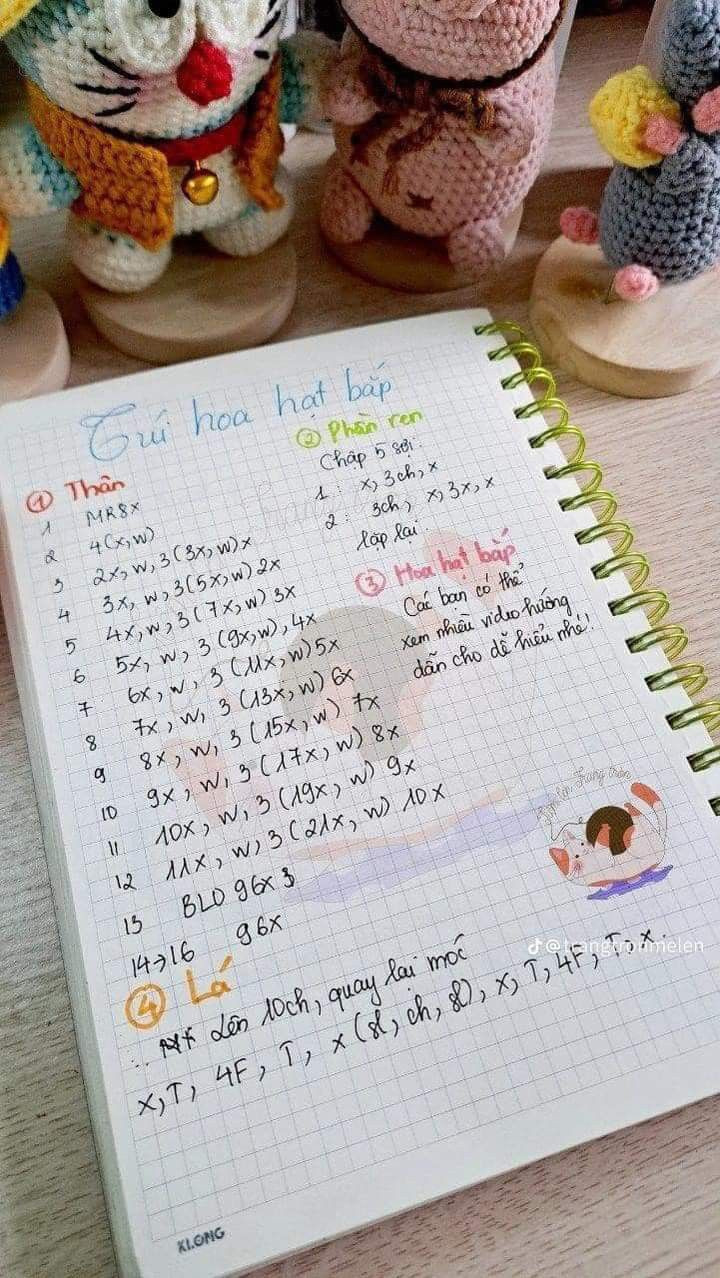 Túi hoa hạt bắp
① Thân
1 MR8x
2 4(x,w)
3 2x, w, 3(3x, w)x
4 3x, w, 3(5x, w)2x
5 4x, w, 3(7x, w)3x
6 5x, w, 3(9x,w), 4x
7 6x, w, 3(11x, w)5x
8 7x, w, 3(13x, w)6x
9 8x, w, 3(15x, w) 7x
10 9x, w, 3(17x, w) 8x
11 10x, w, 3(19x, w) 9x
12 11x, w, 3(21x, w) 10x
13 BLO 96x
14→16 96x
② Phần ren
Chập 5 sợi:
1: x, 3ch, x
2: 3ch, x, 3x, x
lặp lại.
③ Hoa hạt bắp
Các bạn có thể
xem nhiều video hướng
dẫn cho dễ hiểu nhé!
④ Lá
Lên 10ch, quay lại móc
x, T, 4F, T, x (sl, ch, sl), x, T, 4F, T, x.
@trangtronmelen
KLONG